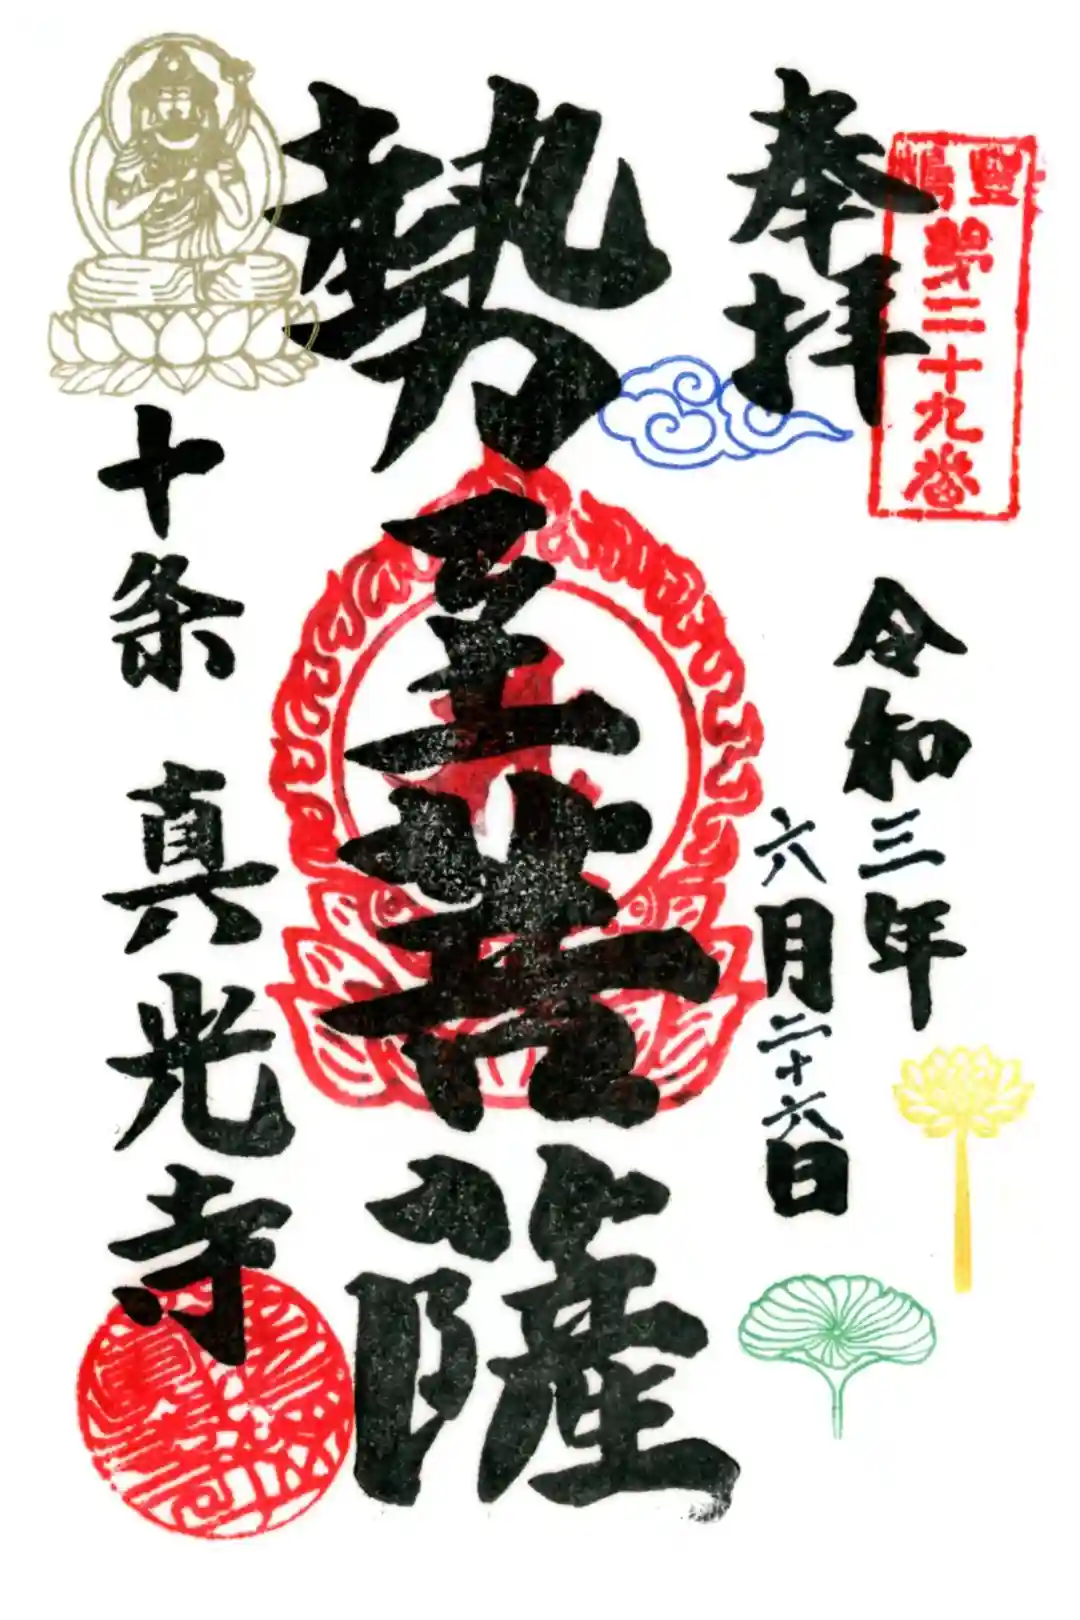 豊嶋
第二十九番
奉拝
令和三年
六月二十六日
勢至菩薩
十条 真光寺